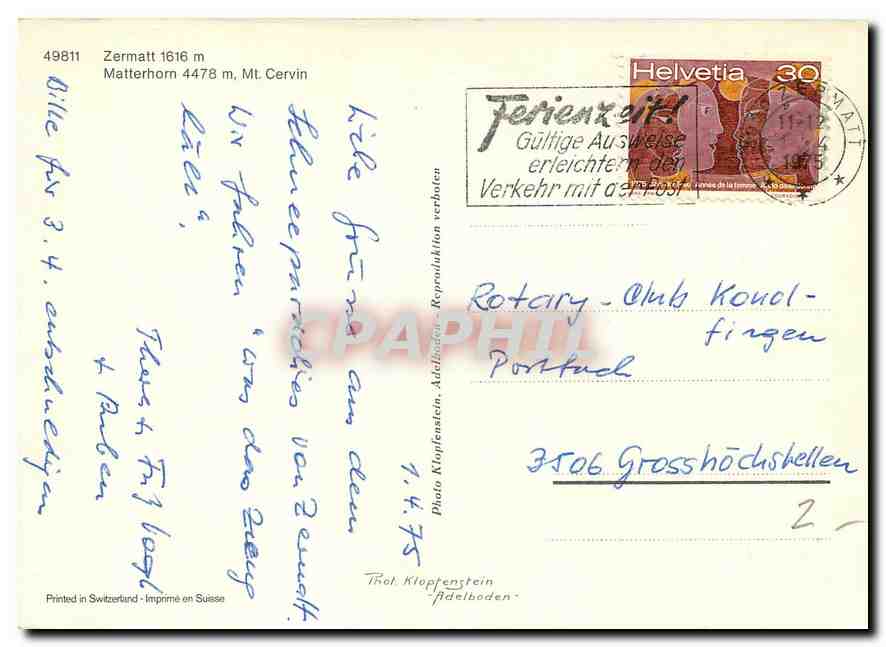 49811 Zermatt 1616 m
Matterhorn 4478 m, Mt. Cervin
Helvetia 30
Année de la femme
Ferienzeit!
Gültige Ausweise
erleichtern den
Verkehr mit der Post
ZERMATT
11-12
1975
1.4.75
Liebe Grüsse aus dem
Schneeparadies von Zermatt.
Wir fahren "was das Zeug
hält".
Therese + Fritz Vogt
+ Buben
Bitte für 3.4. entschuldigen
Photo Klopfenstein, Adelboden - Reproduktion verboten
Rotary-Club Konol-
fingen
Postfach
3506 Grosshöchstetten
2 -
Phot. Klopfenstein
-Adelboden-
Printed in Switzerland - Imprimé en Suisse
CPAPHIL